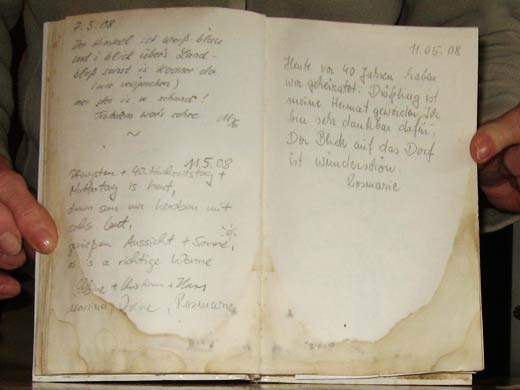 7.5.08
Der Himmel ist weiß-blau
und i blick über's Land -
bloß sonst is koaner da
(wie versprochen)
mei des is a schand!
Trotzdem war's schee
~
11.5.08
Pfingsten + 40. Hochzeitstag +
Muttertag is heut,
san mir heroben mit
Leut,
genießen Aussicht + Sonne,
es is a richtige Wonne
Sabine + Christian + Hans
Martina, Rosmarie
11.05.08
Heute vor 40 Jahren haben
wir geheiratet. ist
meine Heimat geworden. Ich
bin sehr dankbar dafür.
Der Blick auf das Dorf
ist wunderschön.
Rosmarie